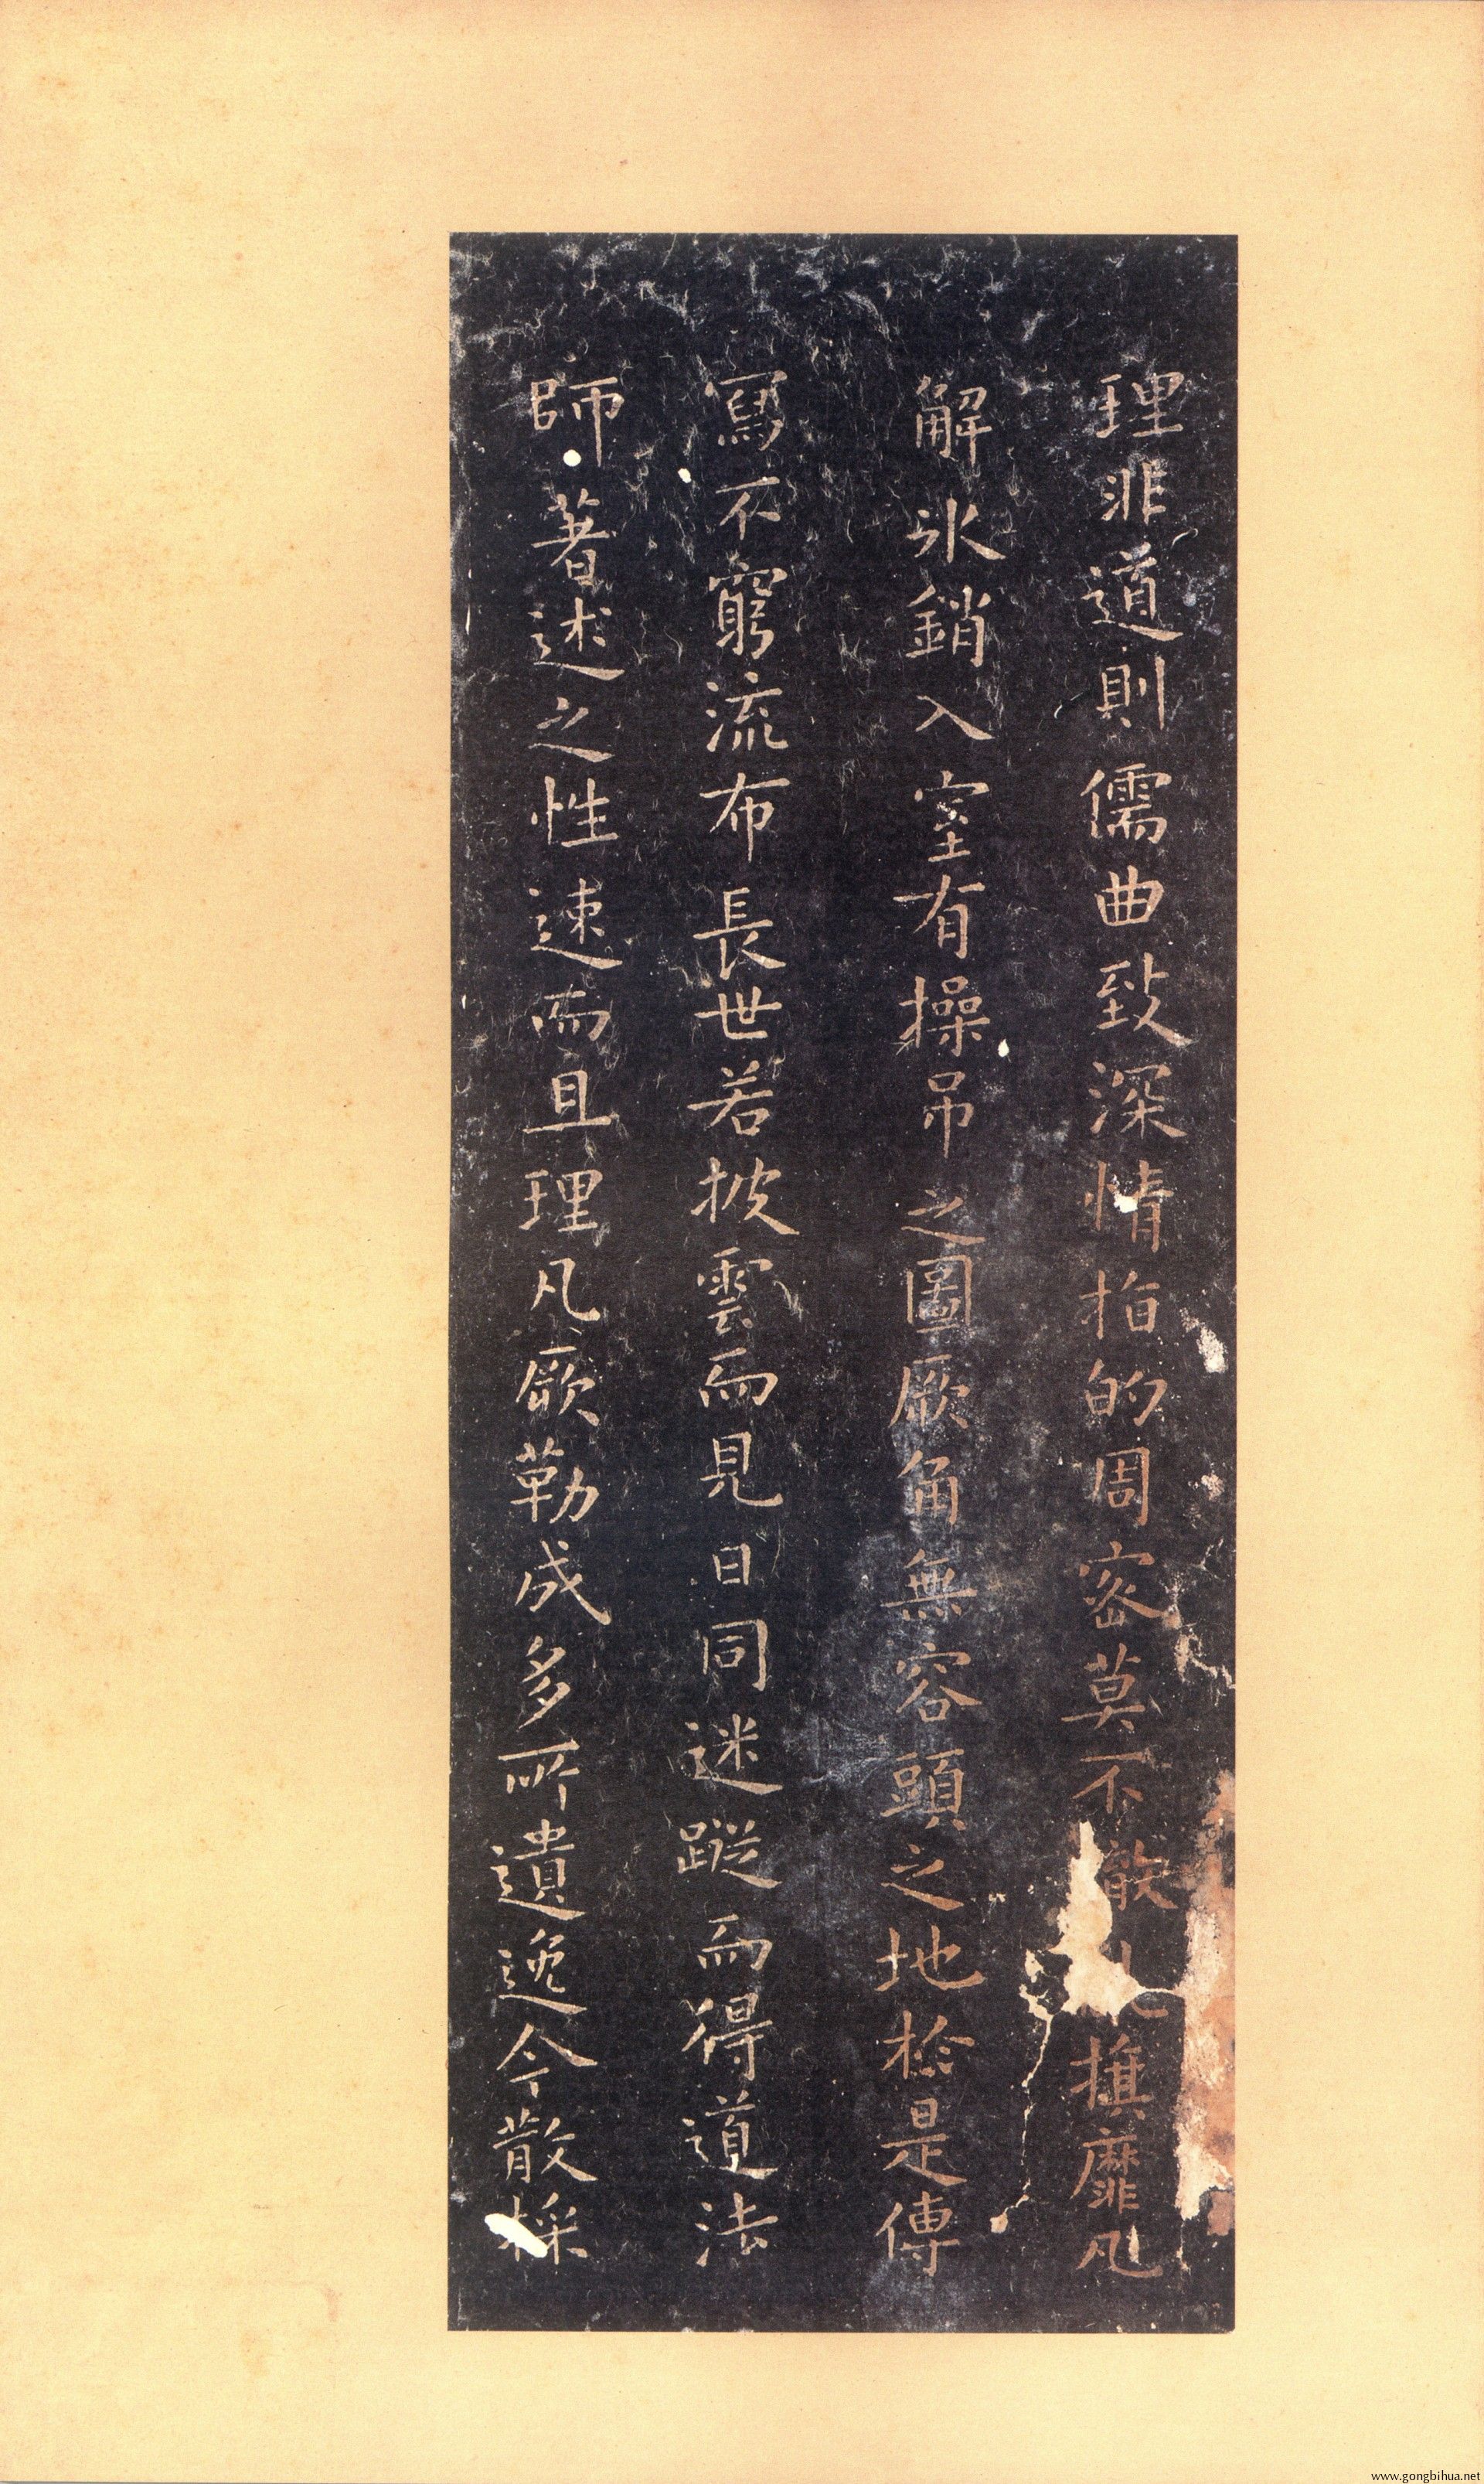 理非道則儒曲致深情指的周密莫不散亂旗靡凡
解氷銷入室有操吊之圖厥角無容頭之地於是傳
寫不窮流布長世若披雲而見日同迷蹤而得道法
師著述之性速而且理凡厥勒成多所遺逸今散採
www.gongbihua.net